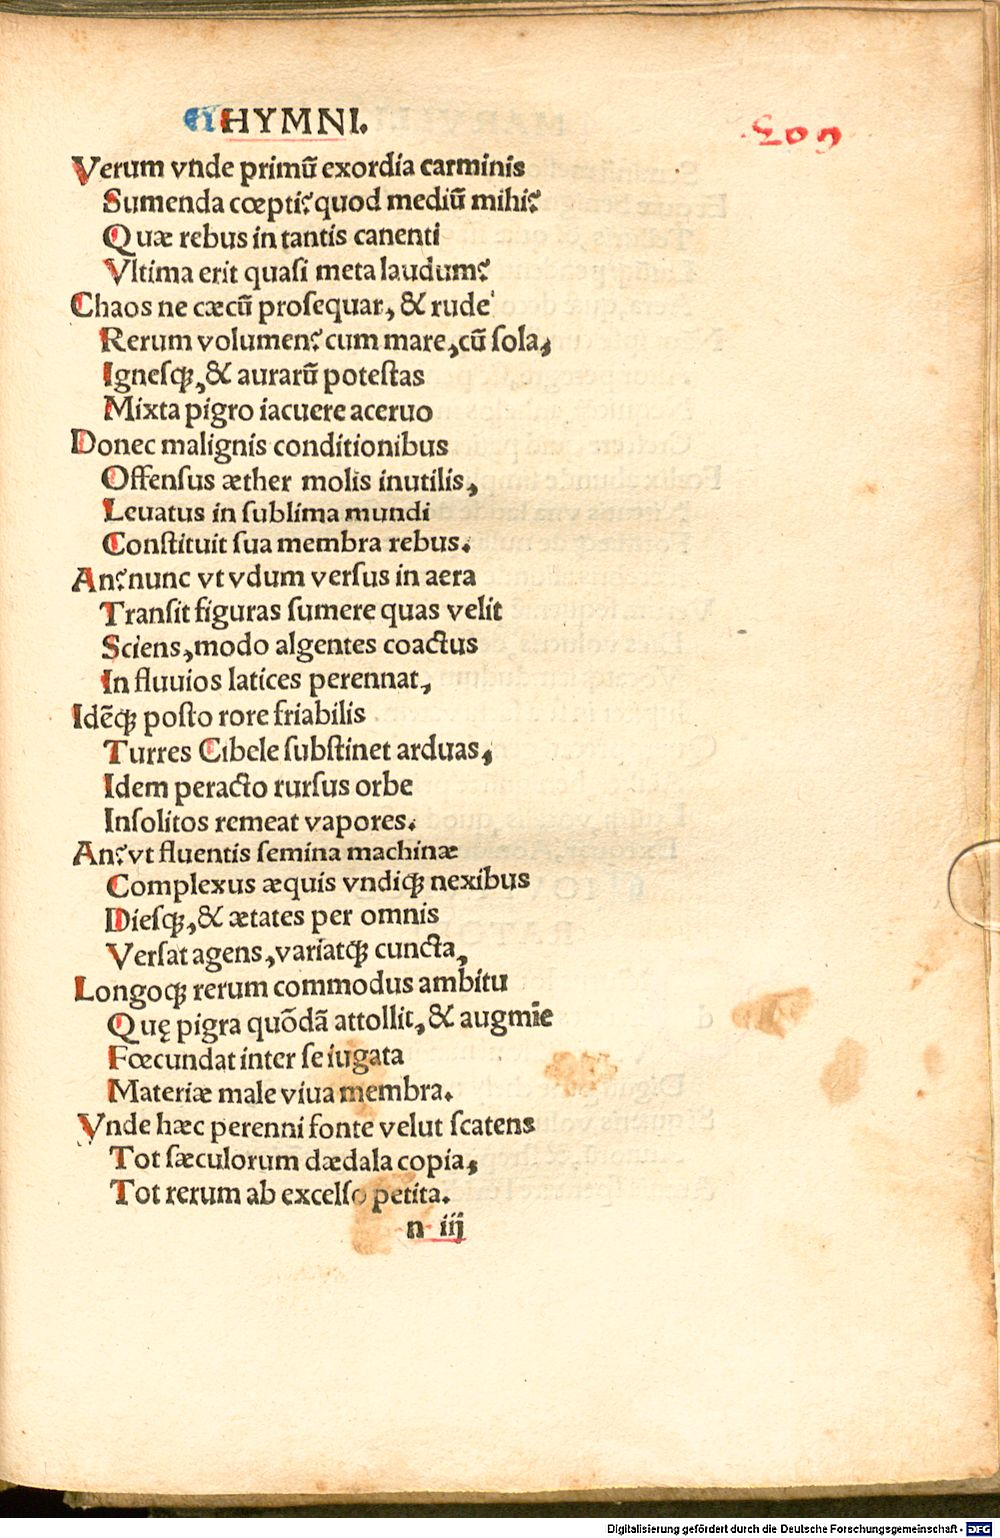 HYMNI.
Verum vnde primū exordia carminis
Sumenda cœpti? quod mediū mihi?
Quæ rebus in tantis canenti
Vltima erit quasi meta laudum?
Chaos ne cæcū prosequar, & rude
Rerum volumen? cum mare, cū sola,
Ignesqꝫ, & aurarū potestas
Mixta pigro iacuere aceruo
Donec malignis conditionibus
Offensus æther molis inutilis,
Leuatus in sublima mundi
Constituit sua membra rebus.
An? nunc vt vdum versus in aera
Transit figuras sumere quas velit
Sciens, modo algentes coactus
In fluuios latices perennat,
Idēqꝫ posto rore friabilis
Turres Cibele substinet arduas,
Idem peracto rursus orbe
Insolitos remeat vapores.
An? vt fluentis semina machinæ
Complexus æquis vndiqꝫ nexibus
Diesqꝫ, & ætates per omnis
Versat agens, variatqꝫ cuncta,
Longoqꝫ rerum commodus ambitu
Quę pigra quōdā attollit, & augmīe
Fœcundat inter se iugata
Materiæ male viua membra.
Vnde hæc perenni fonte velut scatens
Tot sæculorum dædala copia,
Tot rerum ab excelso petita.
n iij
Digitalisierung gefördert durch die Deutsche Forschungsgemeinschaft - DFG